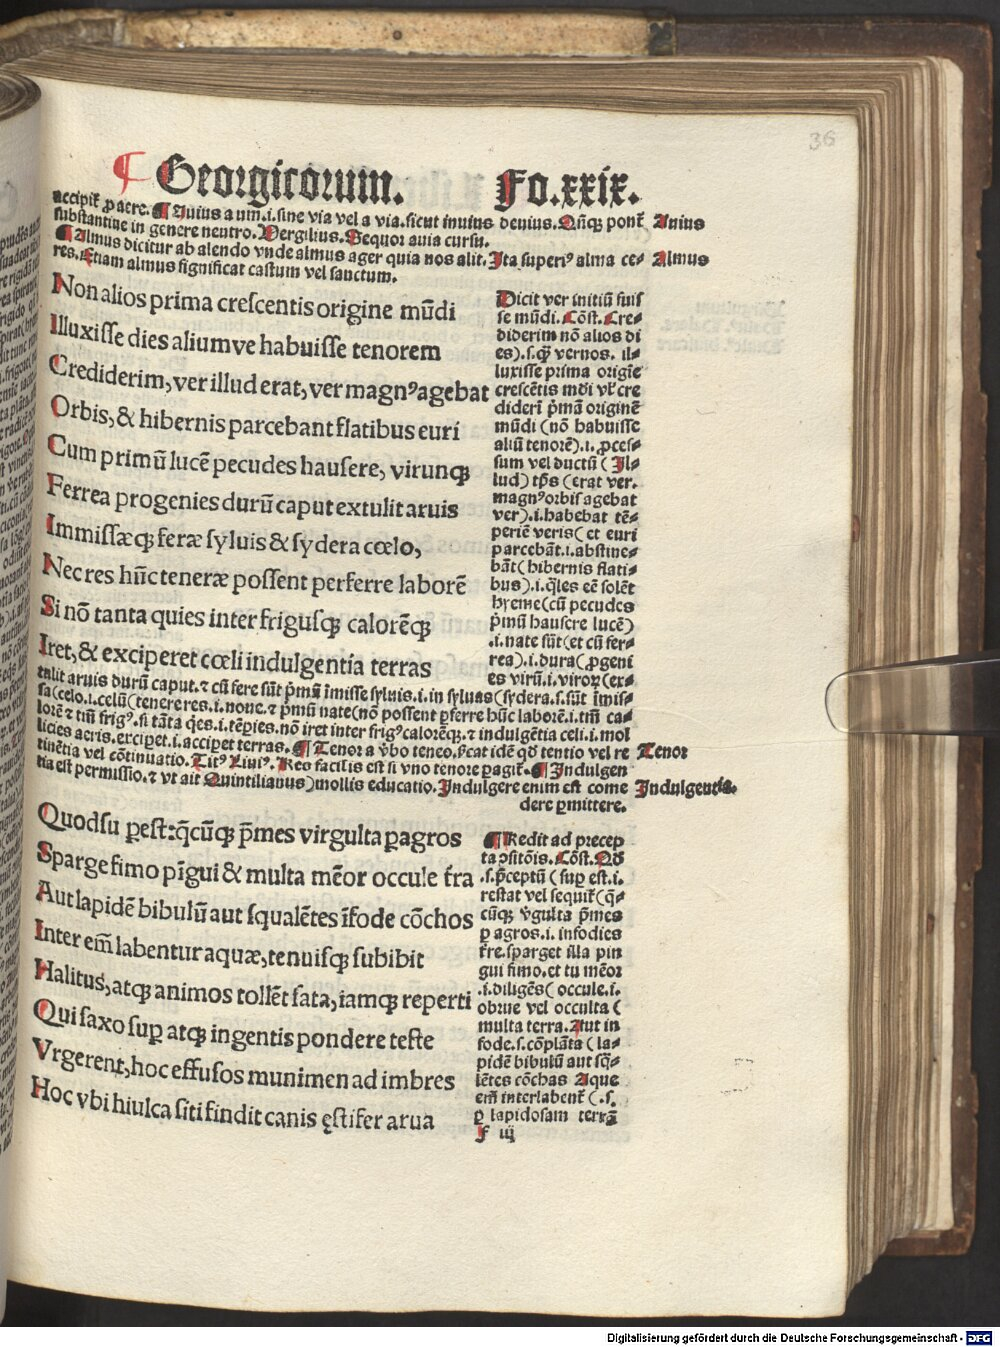 36
¶ Georgicorum. Fo.xxix.
accipit᷑ ꝓ aere. ¶ Auius a um.i.sine via vel a via.sicut inuius deuius. Qn̄qꝫ ponit᷑ Auius
substantiue in genere neutro. Vergilius. Sequor auia cursu.
¶ Almus dicitur ab alendo vnde almus ager quia nos alit. Ita superiꝰ alma ce- Almus
res. Etiam almus significat castum vel sanctum.
Non alios prima crescentis origine mūdi
Illuxisse dies aliumve habuisse tenorem
Crediderim, ver illud erat, ver magnꝰ agebat
Orbis, & hibernis parcebant flatibus euri
Cum primū lucē pecudes hausere, virunqꝫ
Ferrea progenies durū caput extulit aruis
Immissæqꝫ feræ syluis & sydera cœlo,
Nec res hūc teneræ possent perferre laborē
Si nō tanta quies inter frigusqꝫ calorēqꝫ
Iret, & exciperet cœli indulgentia terras
Dicit ver initiū fuis
se mūdi. Cōst. Cre-
diderim nō alios di
es).s.qꝫ vernos. il-
luxisse prima origīe
crescētis mūdi vl̕ cre
dideri p̄mā originē
mūdi (nō habuisse
aliū tenorē).i. ꝓces-
sum vel ductū (Il-
lud) tꝑs (erat ver.
magnꝰ orbis agebat
ver).i.habebat tē-
periē veris (et euri
parcebāt.i.abstine-
bāt (hibernis flati-
bus).i.q̄les eē solēt
hyeme (cū pecudes
p̄mū hausere lucē)
.i.nate sūt (et cū fer-
rea).i.dura (ꝓgeni
es virū.i.viroꝝ (ex-
tulit aruis durū caput.⁊ cū fere sūt p̄mū īmisse syluis.i.in syluas (sydera.s.sūt īmis-
sa (celo.i.celū (tenere res.i.noue.⁊ p̄mū nate (nō possent ꝑferre hūc laborē.i.tm̄ ca-
lorē ⁊ tm̄ frigꝰ.si tāta q̄es.i.tēꝑies.nō iret inter frigꝰ calorēqꝫ.⁊ indulgētia celi.i.mol
licies aeris.exciꝑet.i.acciꝑet terras. ¶ Tenor a v̄bo teneo.sīcat idē qd̄ tentio vel re Tenor
tinētia vel cōtinuatio. Titꝰ Liuiꝰ. Res facilis est si vno tenore ꝑagit᷑. ¶ Indulgen
tia est permissio.⁊ vt ait Quintilianus) mollis educatio. Indulgere enim est conce Indulgentia.
dere ꝑmittere.
Quodsu ꝑest: q̄cūqꝫ p̄mes virgulta ꝑagros
Sparge fimo pīgui & multa mēor occule t̄ra
Aut lapidē bibulū aut squalētes īfode cōchos
Inter em̄ labentur aquæ, tenuisqꝫ subibit
Halitus, atqꝫ animos tollēt sata, iamqꝫ reperti
Qui saxo suꝑ atqꝫ ingentis pondere teste
Vrgerent, hoc effusos munimen ad imbres
Hoc vbi hiulca siti findit canis ęstifer arua
¶ Redit ad precep
ta ꝓsitōis. Cōst. Qd̄
.s.p̄ceptū (suꝑ est.i.
restat vel sequit᷑ (q̄-
cūqꝫ v̄gulta p̄mes
ꝑ agros.i.infodies
t̄re.sparget illa pin
gui fimo.et tu mēor
.i.diligēs (occule.i.
obrue vel occulta (
multa terra. Aut in
fode.s.cōplāta (la-
pidē bibulū aut sq̄-
lētes cōchas Aque
em̄ interlabent᷑ (.s.
ꝑ lapidosam terrā
F iij
Digitalisierung gefördert durch die Deutsche Forschungsgemeinschaft - DFG